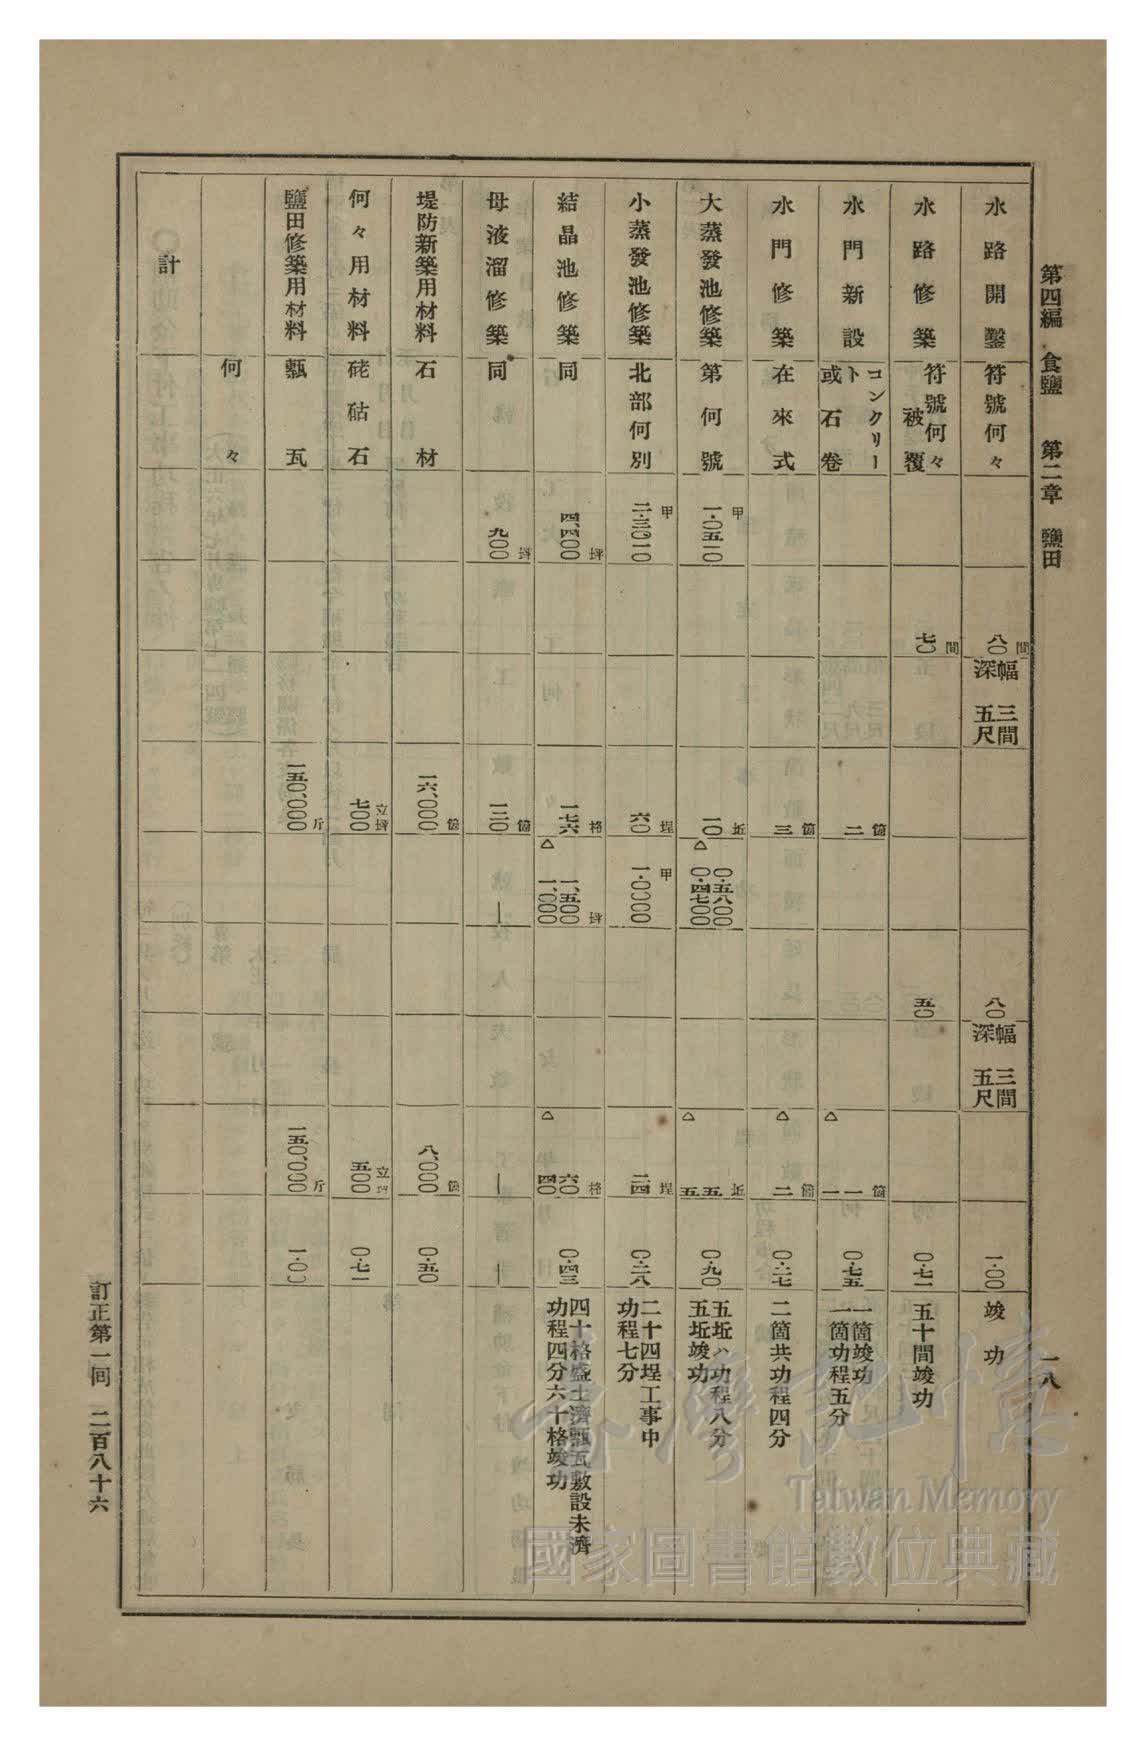 第四編 食鹽 第二章 鹽田
一八
水路開鑿 符號何々 八〇間 幅三間 深五尺 八〇 幅三間 深五尺 一・〇〇 竣功
水路修築 符號何々被覆 七〇間 五〇 〇・七一 五十間竣功
水門新設 コンクリート或石卷 二箇 △一 一箇 〇・七五 一箇竣功 一箇功程五分
水門修築 在來式 三箇 △二箇 〇・二七 二箇共功程四分
大蒸發池修築 第何號 一・〇五一〇甲 一〇坵 〇・五八〇〇 △〇・四七〇〇 五坵 △五 〇・九〇 五坵ハ功程八分 五坵竣功
小蒸發池修築 北部何別 二・三〇一〇甲 六〇埕 一・〇〇〇〇甲 二四埕 〇・二八 二十四埕工事中 功程七分
結晶池修築 同 四、四〇〇坪 一七六格 一、五〇〇坪 △一、〇〇〇 六〇格 △四〇 〇・四三 四十格盛土濟瓢瓦敷設未濟 功程四分六十格竣功
母液溜修築 同 九〇〇坪 一二〇箇 ― ― ―
堤防新築用材料 石材 一六、〇〇〇箇 八、〇〇〇箇 〇・五〇
何々用材料 硓𥑮石 七〇〇立坪 五〇〇立坪 〇・七一
鹽田修築用材料 瓢瓦 一五〇、〇〇〇斤 一五〇、〇〇〇斤 一・〇〇
何々
計
訂正第一回 二百八十六
臺灣記憶
Taiwan Memory
國家圖書館數位典藏